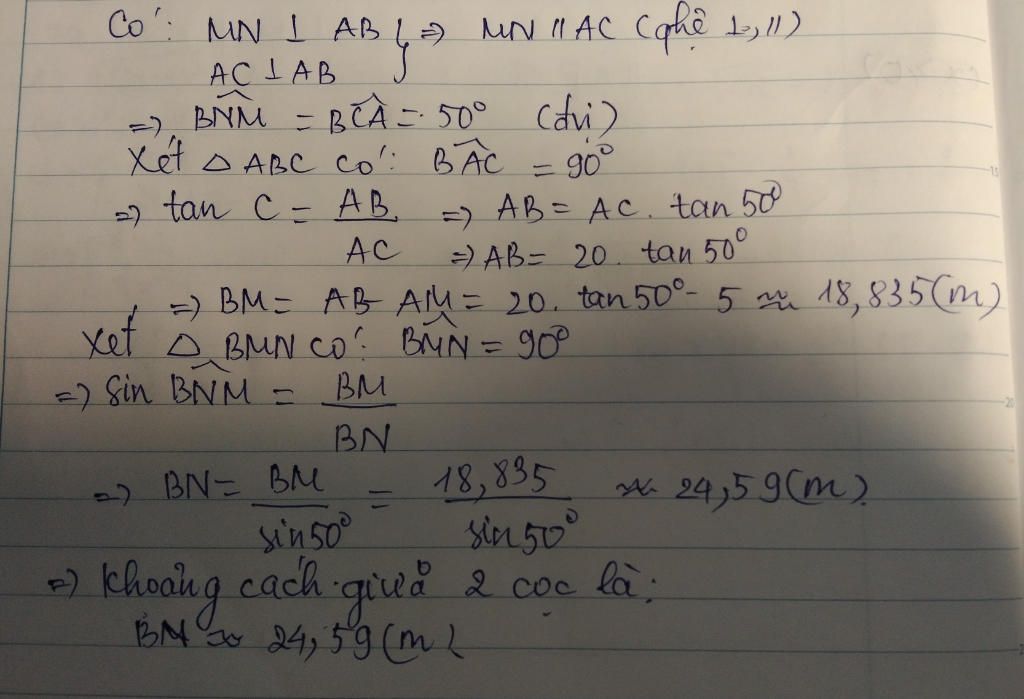 Có: MN ⊥ AB } => MN // AC (qhệ ⊥, //)
AC ⊥ AB
=> BNM = BCA = 50° (đvị)
Xét △ ABC có: BAC = 90°
=> tan C = AB/AC => AB = AC. tan 50°
=> AB = 20. tan 50°
=> BM = AB - AM = 20. tan50° - 5 ≈ 18,835(m)
Xét △ BMN có: BMN = 90°
=> Sin BNM = BM/BN
=> BN = BM/sin50° = 18,835/sin50° ≈ 24,59(m)
=> Khoảng cách giữa 2 cọc là:
BN ≈ 24,59(m)